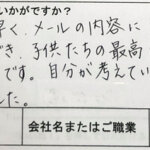 いかがですか？
早く、メールの内容に
でき、子供たちの最高
です。自分が考えてい
した。
会社名またはご職業